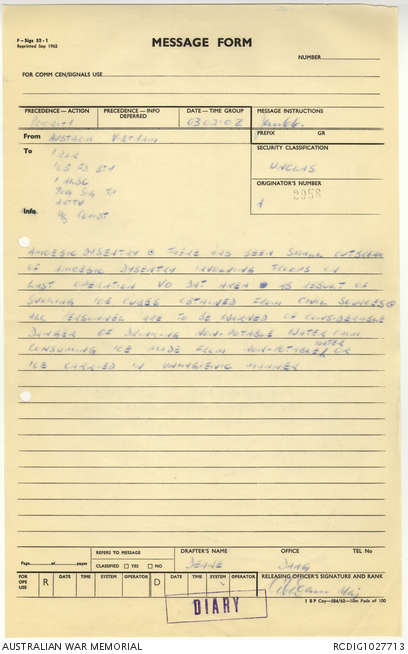 F-Sigs 52-1
Reprinted Sep 1962
MESSAGE FORM
NUMBER
FOR COMM CEN/SIGNALS USE
PRECEDENCE-ACTION
PRECEDENCE-INFO DEFERRED
DATE-TIME GROUP
MESSAGE INSTRUCTIONS
PREFIX GR
From AUSTARM VIETNAM
To 1 RAR
SECURITY CLASSIFICATION
UNCLAS
105 FD BTY
ORIGINATOR'S NUMBER
A 2958
Info
AMOEBIC DYSENTRY @ THERE HAS BEEN SMALL OUTBREAK
OF AMOEBIC DYSENTRY INVOLVING TROOPS ON
LAST OPERATION VO DAT AREA AS RESULT OF
SUCKING ICE CUBES OBTAINED FROM CIVIL SOURCES @
ALL PERSONNEL ARE TO BE WARNED OF CONSIDERABLE
DANGER OF DRINKING NON-POTABLE WATER FROM
CONSUMING ICE MADE FROM NON-POTABLE WATER OR
ICE CARRIED IN UNHYGIENIC MANNER
Page of pages
REFERS TO MESSAGE
CLASSIFIED YES NO
DRAFTER'S NAME
DEANE
OFFICE
DAAG
TEL No
FOR OPS USE
R DATE TIME SYSTEM OPERATOR
D DATE TIME SYSTEM OPERATOR
RELEASING OFFICER'S SIGNATURE AND RANK
Maj
DIARY
AUSTRALIAN WAR MEMORIAL
RCDIG1027713